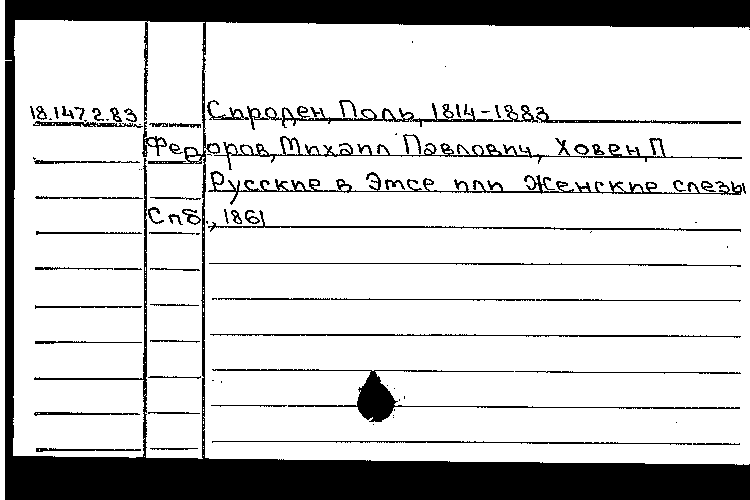 18.147.2.83 Сироден, Поль, 1814-1883
Федоров, Михаил Павлович, Ховен, П.
Русские в Эмсе или Женские слезы
Спб., 1861